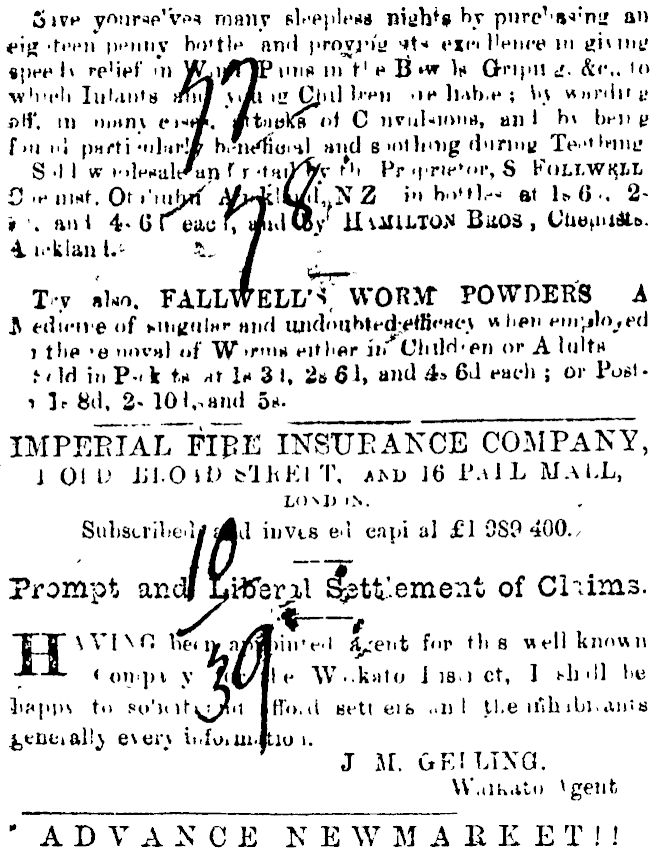 Save yourselves many sleepless nights by purchasing an
eighteen penny bottle and proving its excellence in giving
speedy relief in Wind Pains in the Bowels Griping, &c., to
which Infants and young Children are liable; by warding
off, in many cases, attacks of Convulsions, and by being
found particularly beneficial and soothing during Teething
Sold wholesale and retail by the Proprietor, S FOLLWELL
Chemist, Otahuhu Auckland, NZ in bottles at 1s 6d, 2-
and 4-6d each, and by HAMILTON BROS, Chemists.
Auckland.
77
78
Try also, FALLWELL'S WORM POWDERS A
Medicine of singular and undoubted efficacy when employed
in the removal of Worms either in Children or Adults
Sold in Packets at 1s 3d, 2s 6d, and 4s 6d each; or Post-
1s 8d, 2- 10d, and 5s.
IMPERIAL FIRE INSURANCE COMPANY,
1 OLD BROAD STREET, AND 16 PALL MALL,
LONDON.
Subscribed and invested capital £1 989 400.
Prompt and Liberal Settlement of Claims.
10
39
HAVING been appointed agent for this well known
Company for the Waikato District, I shall be
happy to solicit and afford settlers and the inhabitants
generally every information.
J M. GELLING.
Waikato Agent
ADVANCE NEWMARKET!!